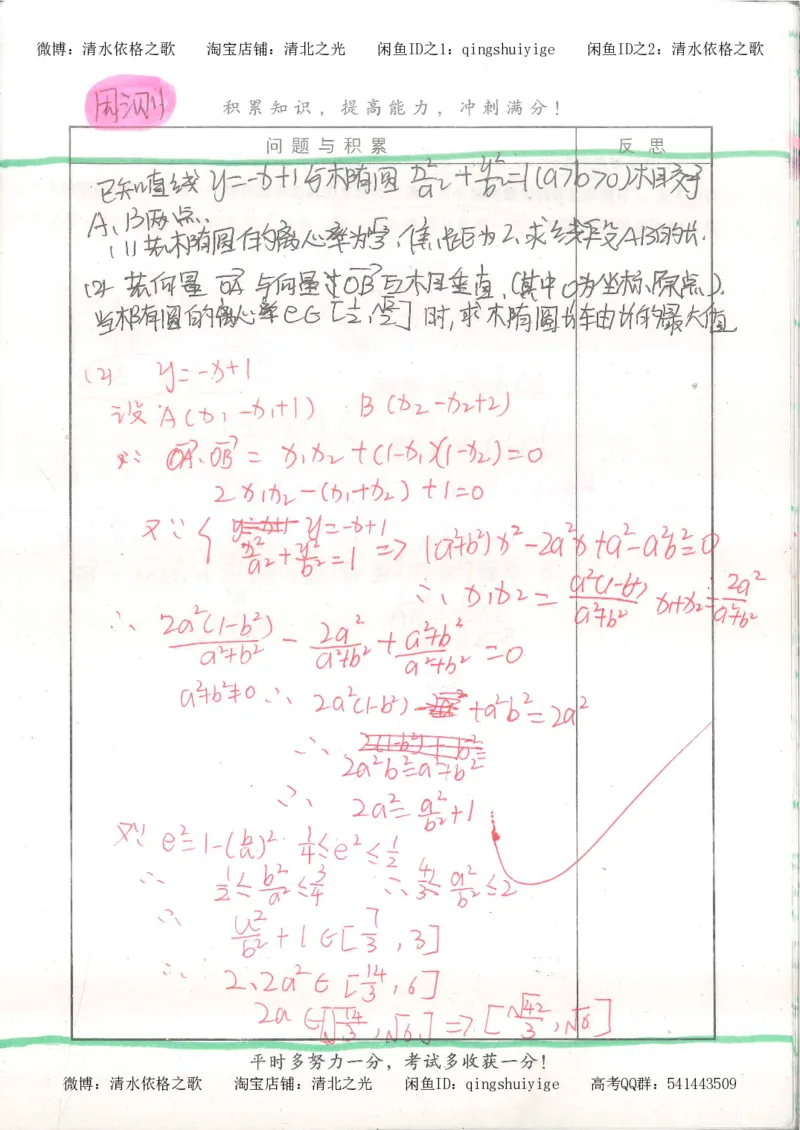 微博：清水依格之歌 淘宝店铺：清北之光 闲鱼ID之1：qingshuiyige 闲鱼ID之2：清水依格之歌
周测1
积累知识，提高能力，冲刺满分！
问题与积累 反思
已知直线 y=-x+1 与椭圆 x²/a²+y²/b²=1(a>b>0)相交于
A、B两点.
(1) 若椭圆的离心率为√3/3, 焦距为2, 求线段AB的长.
(2) 若向量 OA 与向量 OB 互相垂直, (其中O为坐标原点).
当椭圆的离心率 e∈[1/2, √2/2] 时, 求椭圆长轴长的最大值
(2) y=-x+1
设 A(x₁, -x₁+1) B(x₂ -x₂+2)
∵ OA·OB = x₁x₂+(1-x₁)(1-x₂)=0
2x₁x₂-(x₁+x₂)+1=0
又∵ { y=-x+1
x²/a²+y²/b²=1 => (a²+b²)x²-2a²x+a²-a²b²=0
∴ x₁x₂= a²(1-b²)/(a²+b²) x₁+x₂= 2a²/(a²+b²)
∴ 2a²(1-b²)/(a²+b²) - 2a²/(a²+b²) + (a²+b²)/(a²+b²) =0
a²+b²≠0 ∴ 2a²(1-b²) +a²+b²=2a²
∴ 2a²b²=a²+b²
∴ 2a²= a²/b²+1
又∵ e²=1-(b/a)² 1/4≤e²≤1/2
∴ 1/2≤b²/a²≤3/4 ∴ 4/3≤a²/b²≤2
∴ a²/b²+1∈[7/3, 3]
∴ 2·2a²∈[14/3, 6]
2a∈[√14/3, √6] => [√42/3, √6]
平时多努力一分，考试多收获一分！
微博：清水依格之歌 淘宝店铺：清北之光 闲鱼ID：qingshuiyige 高考QQ群：541443509